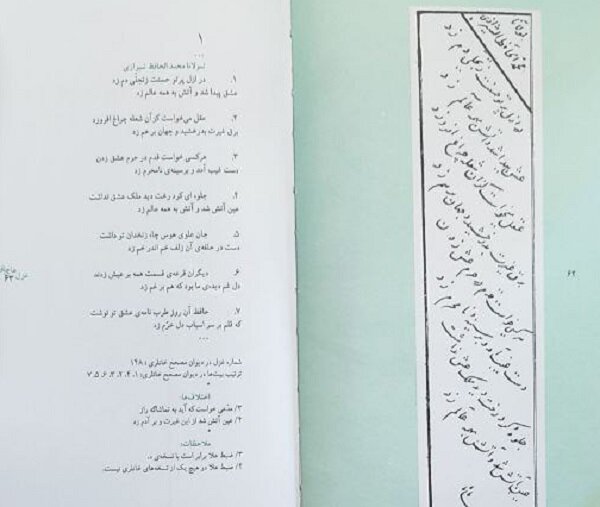 ۱
لمولانا محمد الحافظ شیرازی
۱. در ازل پرتو حسنت ز تجلّی دم زد
عشق پیدا شد و آتش به همه عالم زد
۲. عقل می‌خواست کزان شعله چراغ افروزد
برق غیرت بدرخشید و جهان بر هم زد
۳. مرکسی خواست قدم در حرم عشق زدن
دست غیب آمد و بر سینه‌ی نامحرم زد
۴. جلوه ای کرد رخت دید ملک عشق نداشت
عین آتش شد و آتش به همه عالم زد
۵. جان علوی هوس چاه زنخدان تو داشت
دست در حلقه‌ی آن زلف خم اندر خم زد
۶. دیگران قرعه‌ی قسمت همه بر عیش زدند
دل غم دیده‌ی ما بود که هم بر غم زد
۷. حافظ آن روز طرب نامه‌ی عشق تو نوشت
که قلم بر سر اسباب دل خرّم زد
...
شماره غزل در دیوان مصحح خانلری: ۱۴۸
ترتیب بیت‌ها در دیوان مصحح خانلری: ۱، ۴، ۲، ۳، ۶، ۵، ۷
اختلاف‌ها:
۳/ مدّعی خواست که آید به تماشاگه راز
۴/ عین آتش شد از این غیرت و بر آدم زد
...
ملاحظات:
۳/ ضبط علا برابر است با نسخه‌ی
۴/ ضبط علا در هیچ یک از نسخه‌های خانلری نیست.
۶۳
۶۲
در ازل پرتو حسنت ز تجلی دم زد
عشق پیدا شد و آتش بهمه عالم زد
عقل میخواست کزان شعله چراغ افروزد
برق غیرت بدرخشید و جهان بر هم زد
مرکسی خواست قدم در حرم عشق زدن
دست غیب آمد و بر سینه نامحرم زد
جلوه کرد رخت دید ملک عشق نداشت
عین آتش شد و آتش بهمه عالم زد